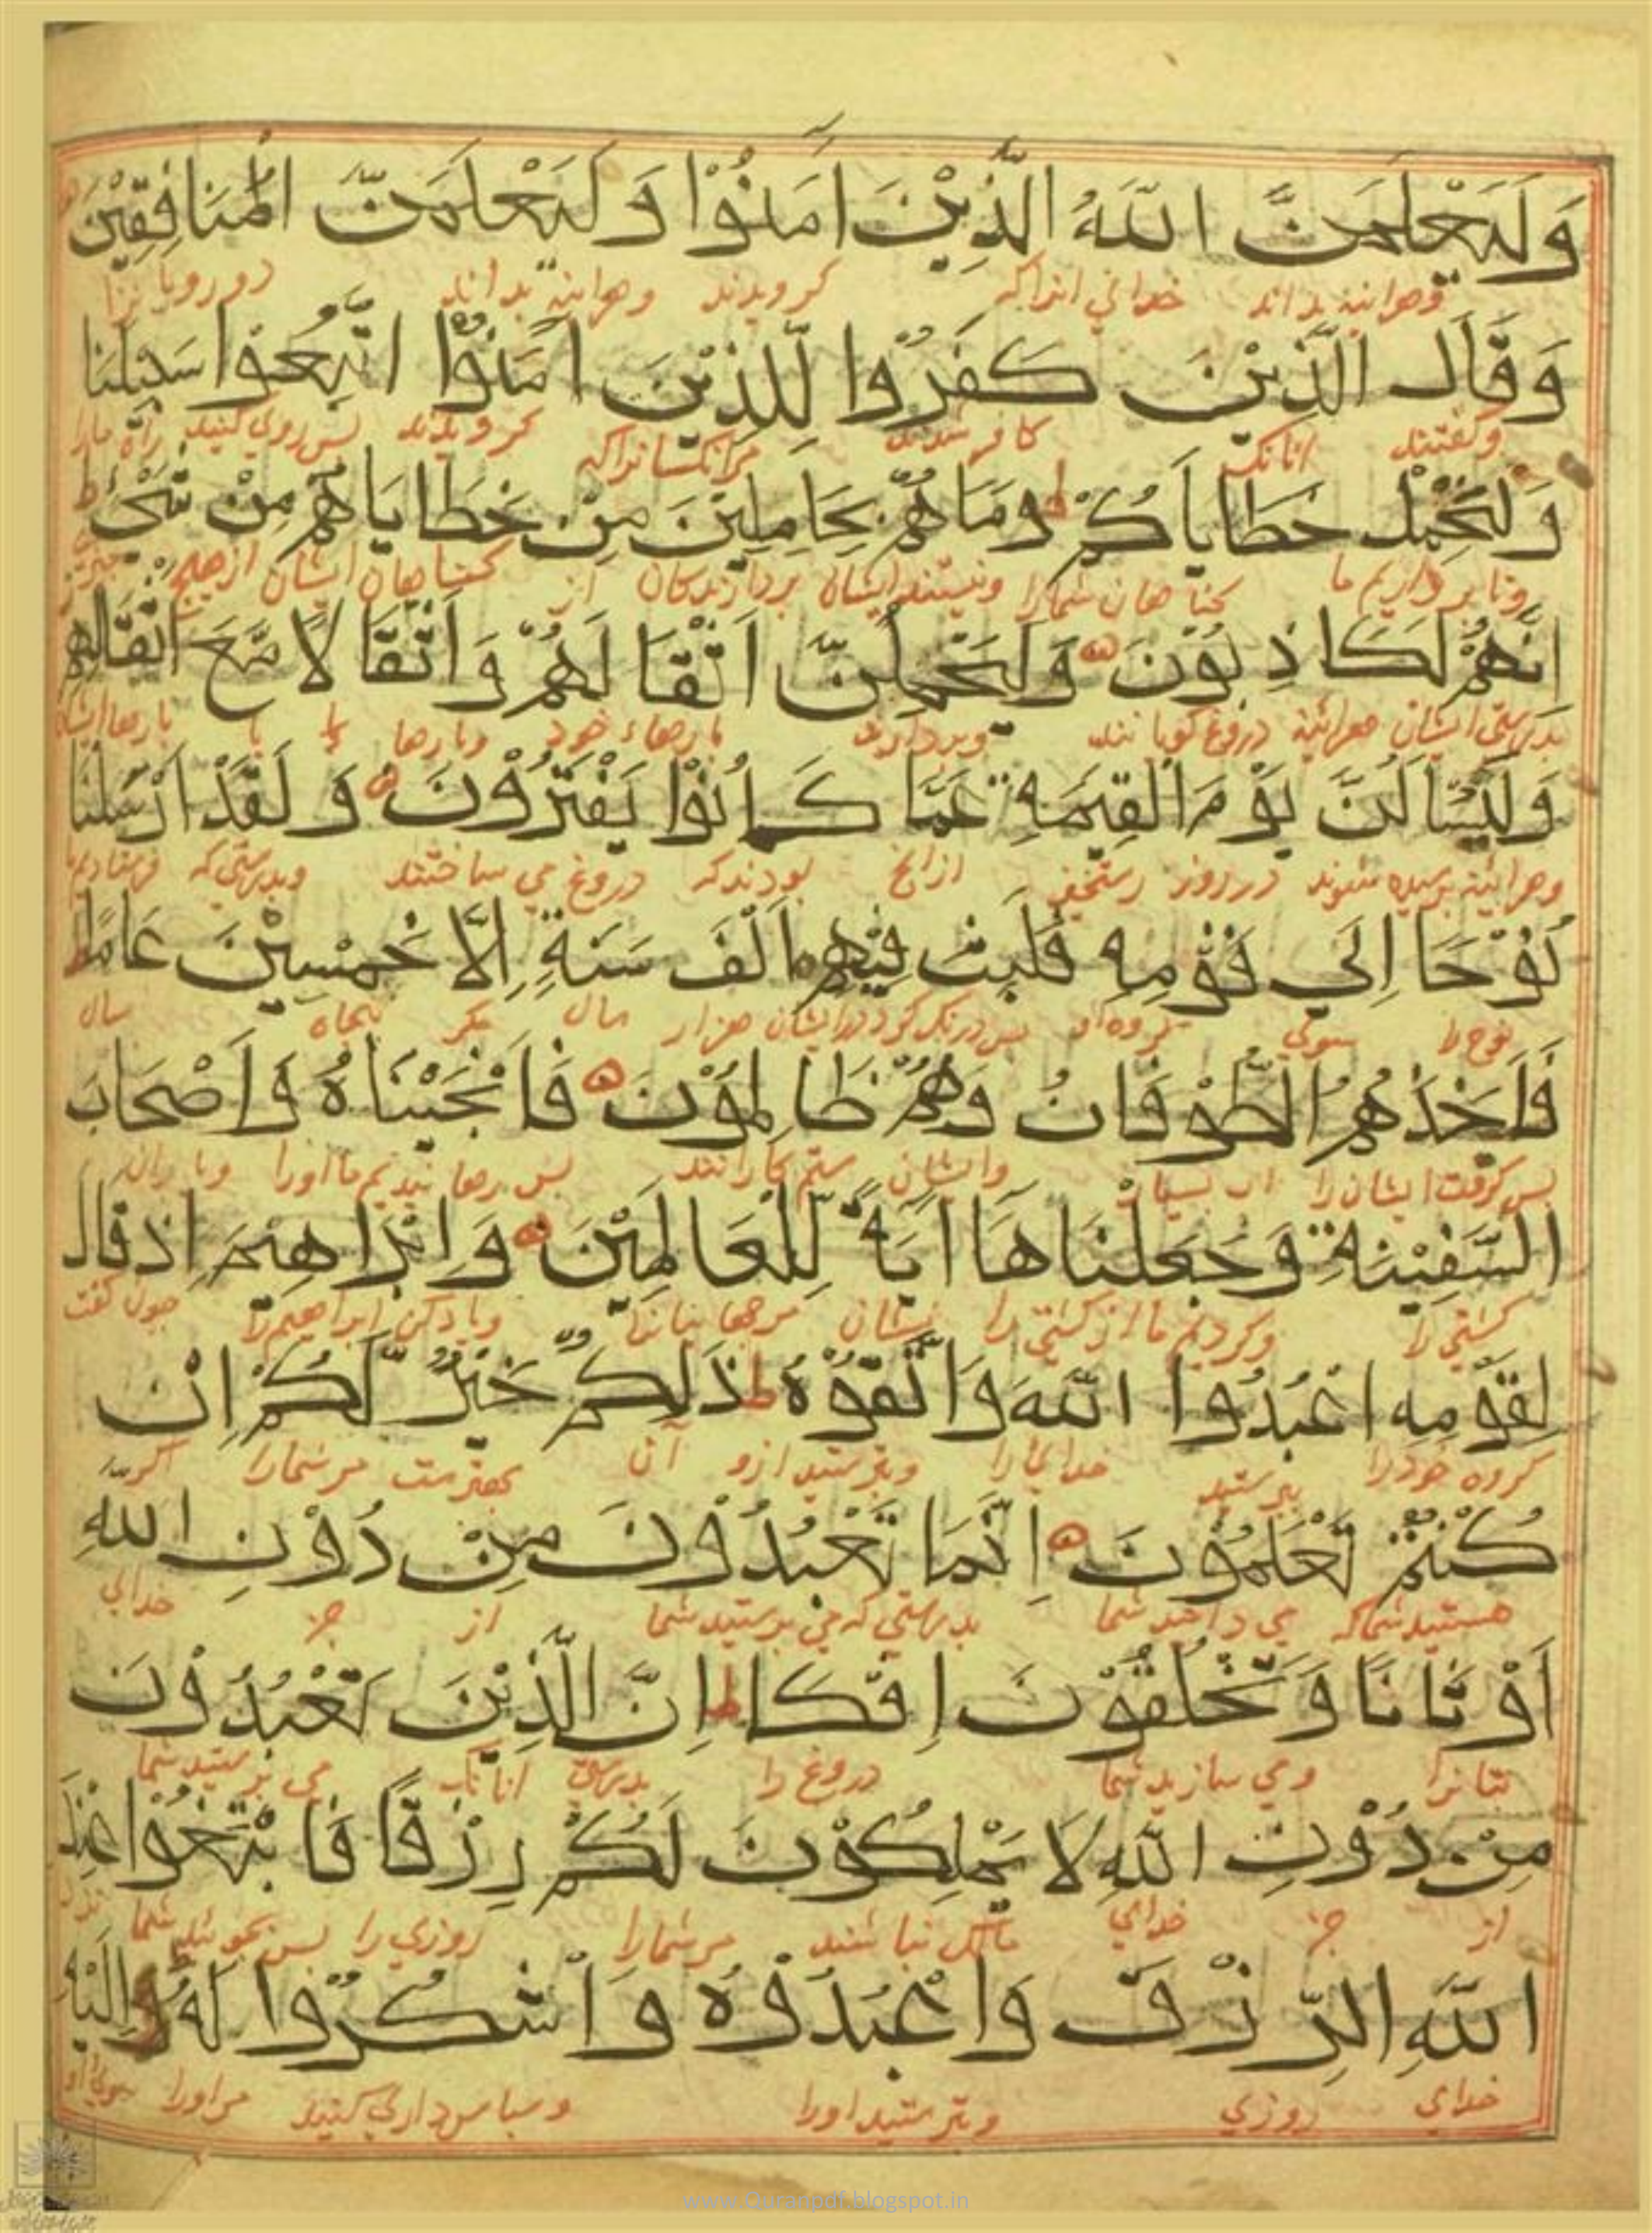 وَلَيَعْلَمَنَّ اللَّهُ الَّذِيْنَ اٰمَنُوْا وَلَيَعْلَمَنَّ الْمُنَافِقِيْنَ
وهراينه بداند خداي انداكه كرويدند وهراينه بداند دورويا نرا
وَقَالَ الَّذِيْنَ كَفَرُوْا لِلَّذِيْنَ اٰمَنُوْا اتَّبِعُوْا سَبِيْلَنَا
وكفتند انانكه كافر شدند مرانكسانراكه كرويدند بس روي كنيد راه مارا
وَلْنَحْمِلْ خَطَايَاكُمْ ط وَمَا هُمْ بِحَامِلِيْنَ مِنْ خَطَايَاهُمْ مِنْ شَيْءٍ ط
وتا بر داريم ما كناهان شمارا ونيستند ايشان بردارندكان از كناهان ايشان از هيچ چيز
اِنَّهُمْ لَكَاذِبُوْنَ وَلَيَحْمِلُنَّ اَثْقَالَهُمْ وَاَثْقَالًا مَّعَ اَثْقَالِهِمْ
بدرستي ايشان هراينه دروغ كويانند وبردارند بارهاء خود وبارها با بارها ايشان
وَلَيُسْاَلُنَّ يَوْمَ الْقِيٰمَةِ عَمَّا كَانُوْا يَفْتَرُوْنَ وَلَقَدْ اَرْسَلْنَا
وهراينه برسيده شوند در روز رستخيز ازانچ بودندكه دروغ مي ساختند وبدرستي كه فرستاديم ما
نُوْحًا اِلٰي قَوْمِهٖ فَلَبِثَ فِيْهِمْ اَلْفَ سَنَةٍ اِلَّا خَمْسِيْنَ عَامًا ط
نوح را سوي كروه او بس درنك كرد در ايشان هزار سال مكر پنجاه سال
فَاَخَذَهُمُ الطُّوْفَانُ وَهُمْ ظَالِمُوْنَ فَاَنْجَيْنَاهُ وَاَصْحَابَ
بس كرفت ايشان را اب بسيار وايشان ستم كارانند بس رهانيديم ما اورا ويا ران
السَّفِيْنَةِ وَجَعَلْنَاهَا اٰيَةً لِّلْعَالَمِيْنَ وَاِبْرَاهِيْمَ اِذْ قَالَ
كشتي را وكرديم ما ان كشتي را نشان مرجهانيانرا وياد كن ابراهيم را چون كفت
لِقَوْمِهِ اعْبُدُوا اللَّهَ وَاتَّقُوْهُ ط ذٰلِكُمْ خَيْرٌ لَّكُمْ اِنْ
كروه خودرا بپرستيد خدايرا وبترسيد ازو آن بهترست مرشمارا اكر
كُنْتُمْ تَعْلَمُوْنَ اِنَّمَا تَعْبُدُوْنَ مِنْ دُوْنِ اللهِ
هستيد شماكه مي دانيد شما بدرستي كه مي برستيد شما از جز خداي
اَوْثَانًا وَّتَخْلُقُوْنَ اِفْكًا ط اِنَّ الَّذِيْنَ تَعْبُدُوْنَ
بتانرا ومي سازيد شما دروغ را بدرستي انانكه مي برستيد شما
مِنْ دُوْنِ اللَّهِ لَا يَمْلِكُوْنَ لَكُمْ رِزْقًا فَابْتَغُوْا عِنْدَ
از جز خداي مالك نباشند مرشمارا روزي را بس بجوئيد شما نزد
اللَّهِ الرِّزْقَ وَاعْبُدُوْهُ وَاشْكُرُوْا لَهٗ وَاِلَيْهِ
خداي روزي وبرستيد اورا وسباس داري كنيد مراورا سوي او
www.Quranpdf.blogspot.in